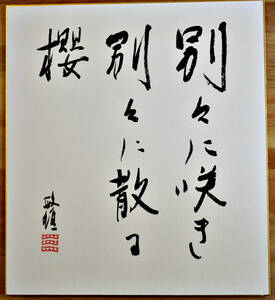 別々に咲き
別々に散る
櫻